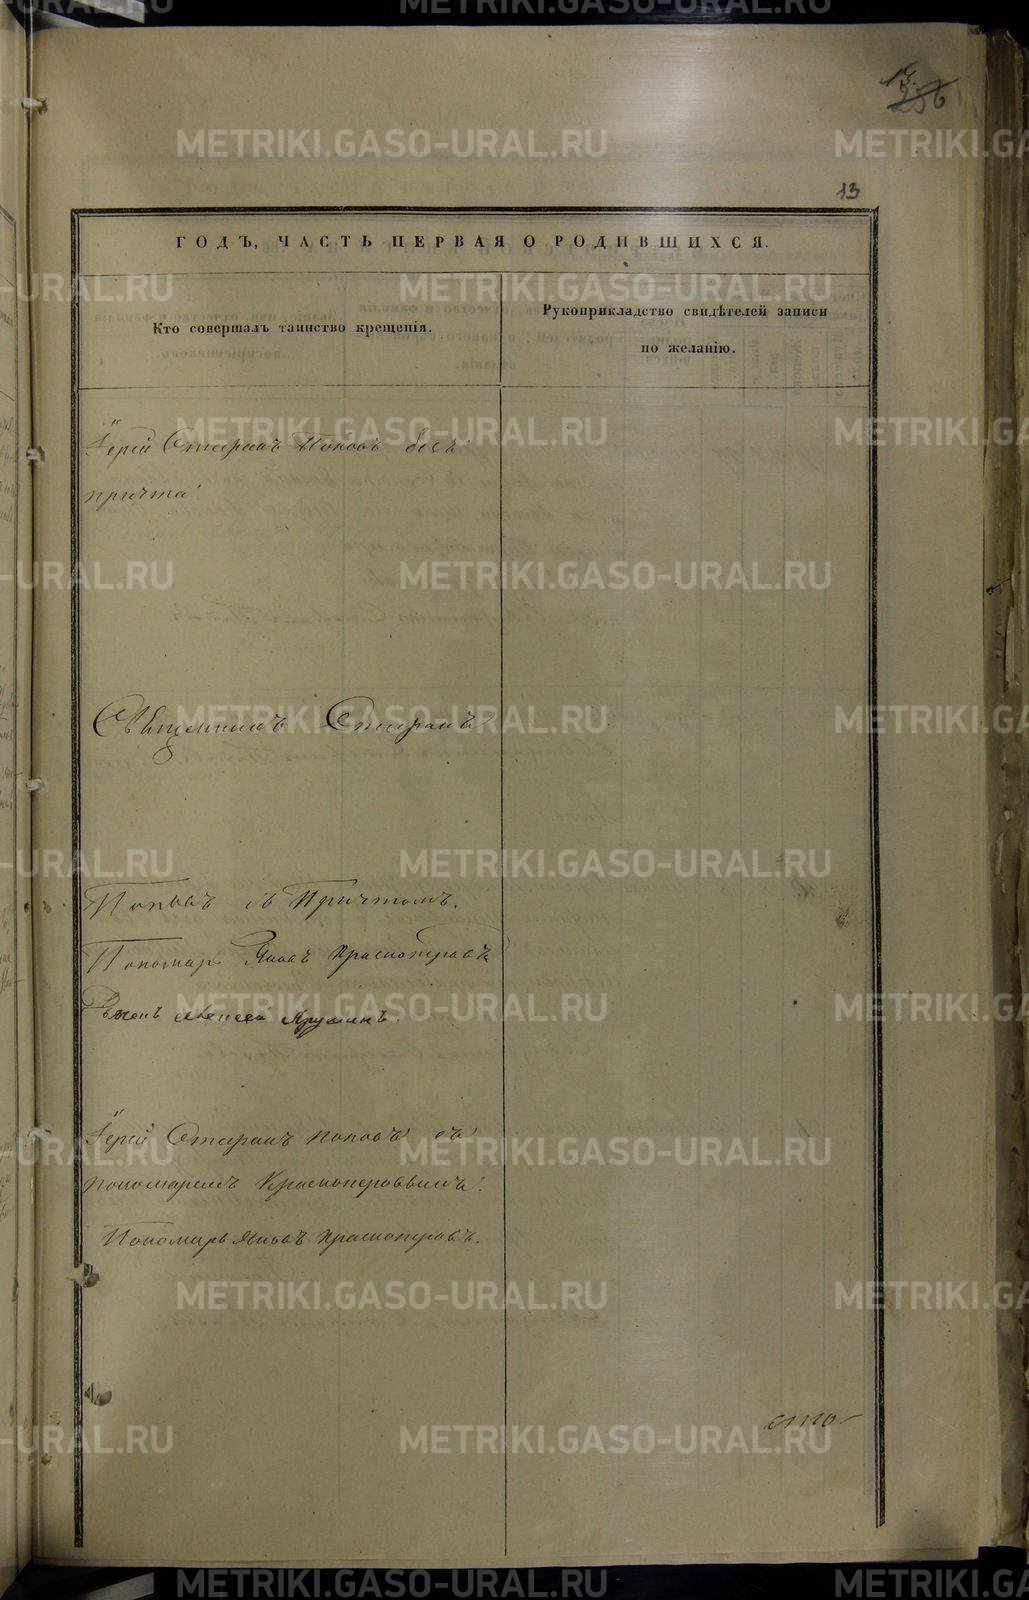 13.
256
13
ГОДЪ, ЧАСТЬ ПЕРВАЯ О РОДИВШИХСЯ.
Кто совершалъ таинство крещенія.
Рукоприкладство свидѣтелей записи
по желанію.
Іерей Стефанъ Поповъ безъ
причта
Священникъ Стефанъ
Поповъ съ Причтомъ.
Пономарь Яковъ Красноперовъ
Алексей
Іерей Стефанъ Поповъ съ
пономаремъ Красноперовымъ.
Пономарь Яковъ Красноперовъ.
METRIKI.GASO-URAL.RU